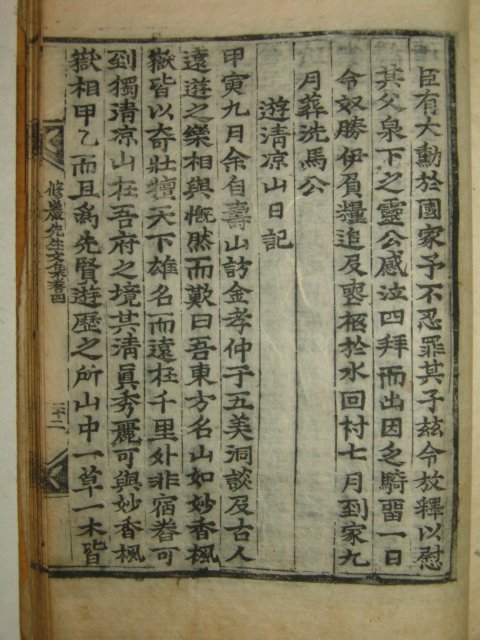 臣有大勳於國家予不忍罪其子玆令放釋以慰
其父泉下之靈公感泣四拜而出因之騎留一日
令奴勝伊負糧追及喪柩於水回村七月到家九
月葬洗馬公
遊淸凉山日記
甲寅九月余自壽山訪金孝仲于五美洞談及古人
遠遊之樂相與慨然而歎曰吾東方名山如妙香楓
嶽皆以奇壯擅天下雄名而遠在千里外非宿舂可
到獨淸凉山在吾府之境其淸眞秀麗可與妙香楓
嶽相甲乙而且爲先賢遊歷之所山中一草一木皆
先生文集卷四
二十二